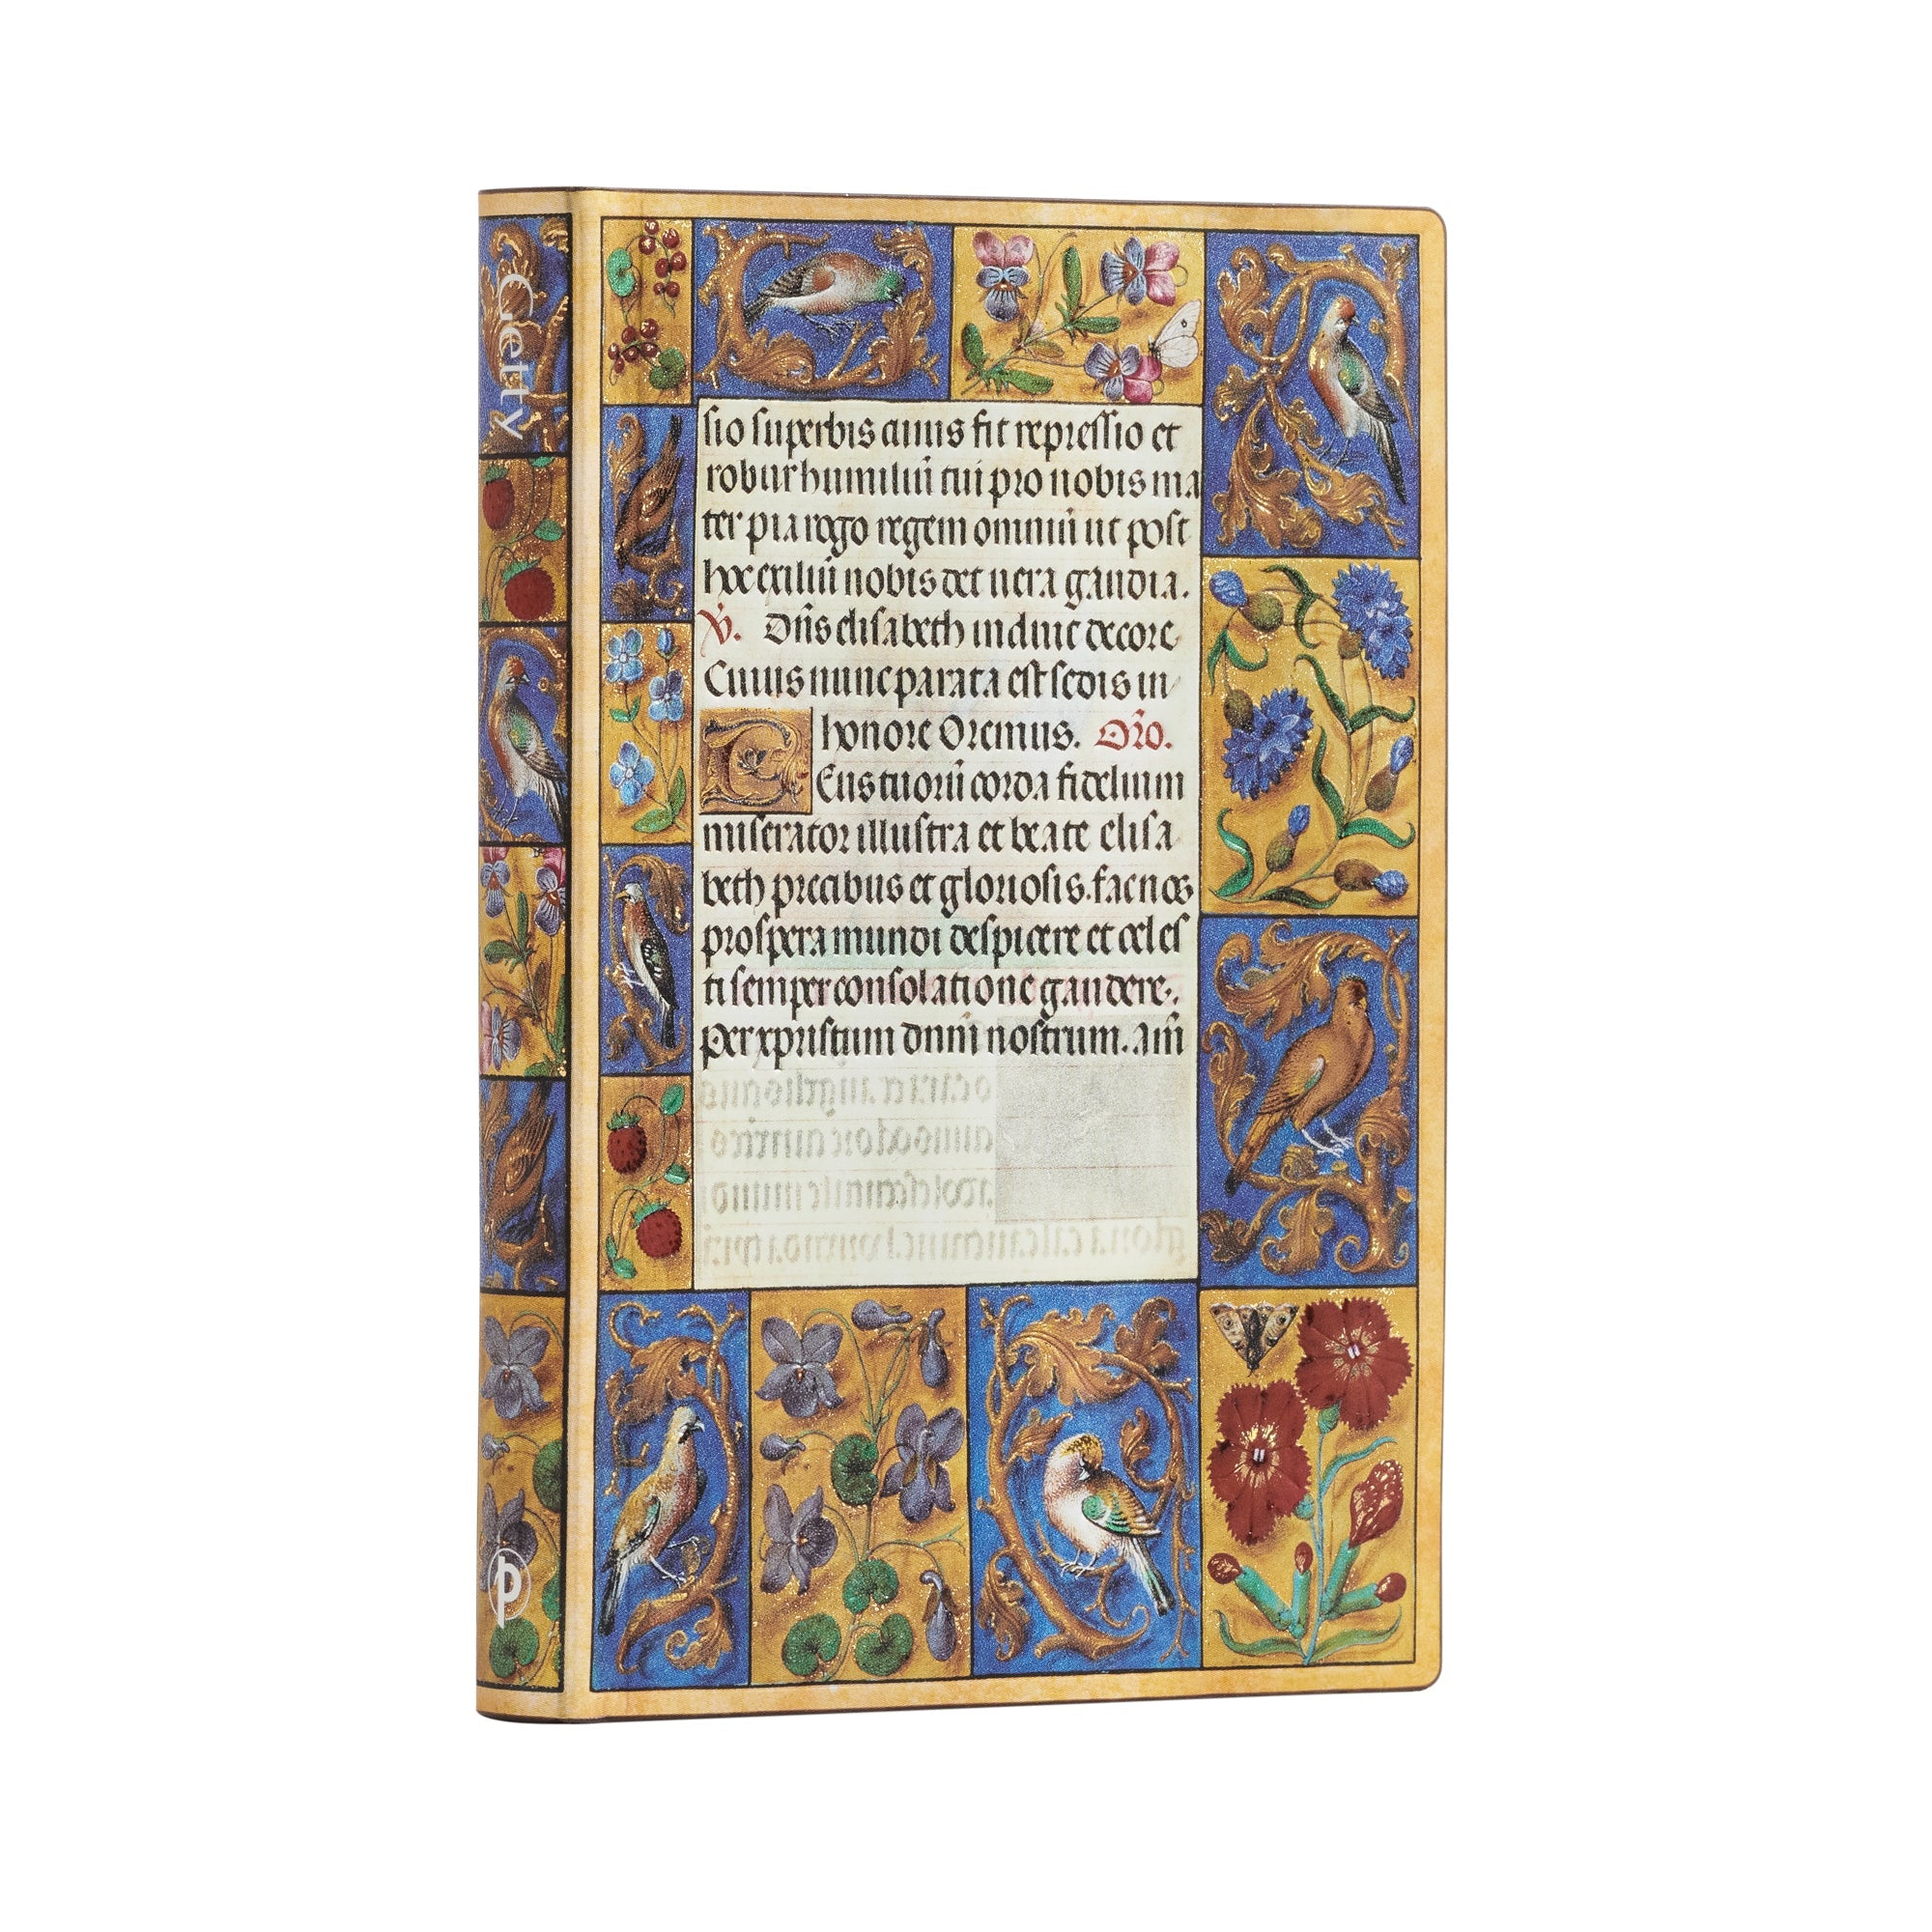 Getty
sio superbis cuius fit repressio et
robur humiliū tui pro nobis ma
ter pia rogo regem omniū ut post
hoc exiliū nobis det uera gaudia.
V̇. Dn̄s elisabeth induit decore
Cuius nunc parata est sedis in
honore Oremus. Or̄o.
DEus tuorū corda fidelium
miserator illustra et beate elisa
beth precibus et gloriosis. fac nos
prospera mundi despicere et celes
ti semper consolatione gaudere.
Per xpristum dnm̄ nostrum. am̄